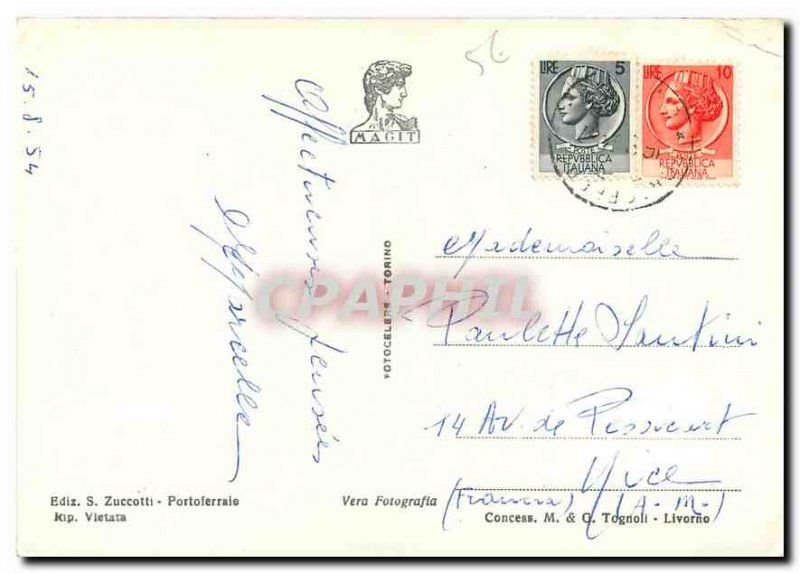 15.8.54
Affectueuses pensées
Marcelle
MAGIT
56
LIRE 5
POSTE
REPVBBLICA
ITALIANA
LIRE 10
REPVBBLICA
ITALIANA
FOTOCELERE - TORINO
CPAPHIL
Mademoiselle
Paulette Santini
14 Av. de Pessicart
Nice
(Francia) (A-M-)
Ediz. S. Zuccotti - Portoferraio
Rip. Vietata
Vera Fotografia
Concess. M. & G. Tognoli - Livorno